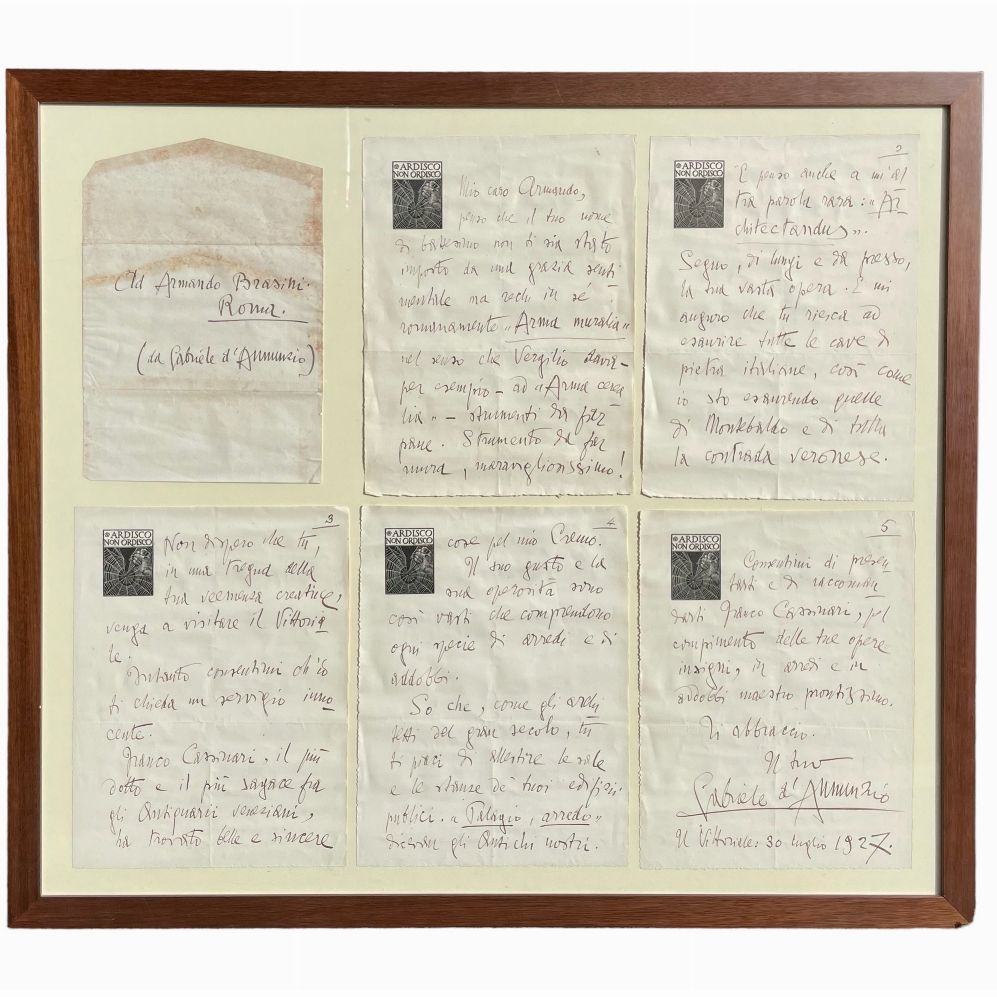 Ad Armando Brasini.
Roma.
(da Gabriele d'Annunzio)
ARDISCO
NON ORDISCO
Mio caro Armando,
penso che il tuo nome
di battesimo non ti sia stato
imposto da una grazia senti
mentale ma rechi in sé
romanamente "Arma muralia"
nel senso che Vergilio dava –
per esempio – ad "Arma cerea
lia" – strumenti da far
pane. Strumento da far
mura, maravigliosissimo!
2
ARDISCO
NON ORDISCO
E penso anche a un'al
tra parola rara: "Ar
chitectandus".
Seguo, di lungi e da presso,
la tua vasta opera. E mi
auguro che tu riesca ad
esaurire tutte le cave di
pietra italiane, così come
io sto esaurendo quelle
di Montebaldo e di tutta
la contrada veronese.
3
ARDISCO
NON ORDISCO
Non dispero che tu,
in una tregua della
tua veemenza creatrice,
venga a visitare il Vittoria
le.
Intanto consentimi ch'io
ti chieda un servigio inno
cente.
Franco Cassinari, il più
dotto e il più sagace fra
gli Antiquarii veneziani,
ha trovato belle e sincere
4
ARDISCO
NON ORDISCO
cose pel mio Eremo.
Il suo gusto e la
sua operosità sono
così vasti che comprendono
ogni specie di arredi e di
addobbi.
So che, come gli archi
tetti del gran secolo, tu
ti piaci di allestire le sale
e le stanze de' tuoi edifici
publici. "Palagio, arredo"
dicevan gli Antichi nostri.
5
ARDISCO
NON ORDISCO
Consentimi di presen
tarti e di raccoman
darti Franco Cassinari, pel
compimento delle tue opere
insigni, in arredi e in
addobbi maestro prontissimo.
Ti abbraccio.
Il tuo
Gabriele d'Annunzio
Il Vittoriale: 30 luglio 1927.